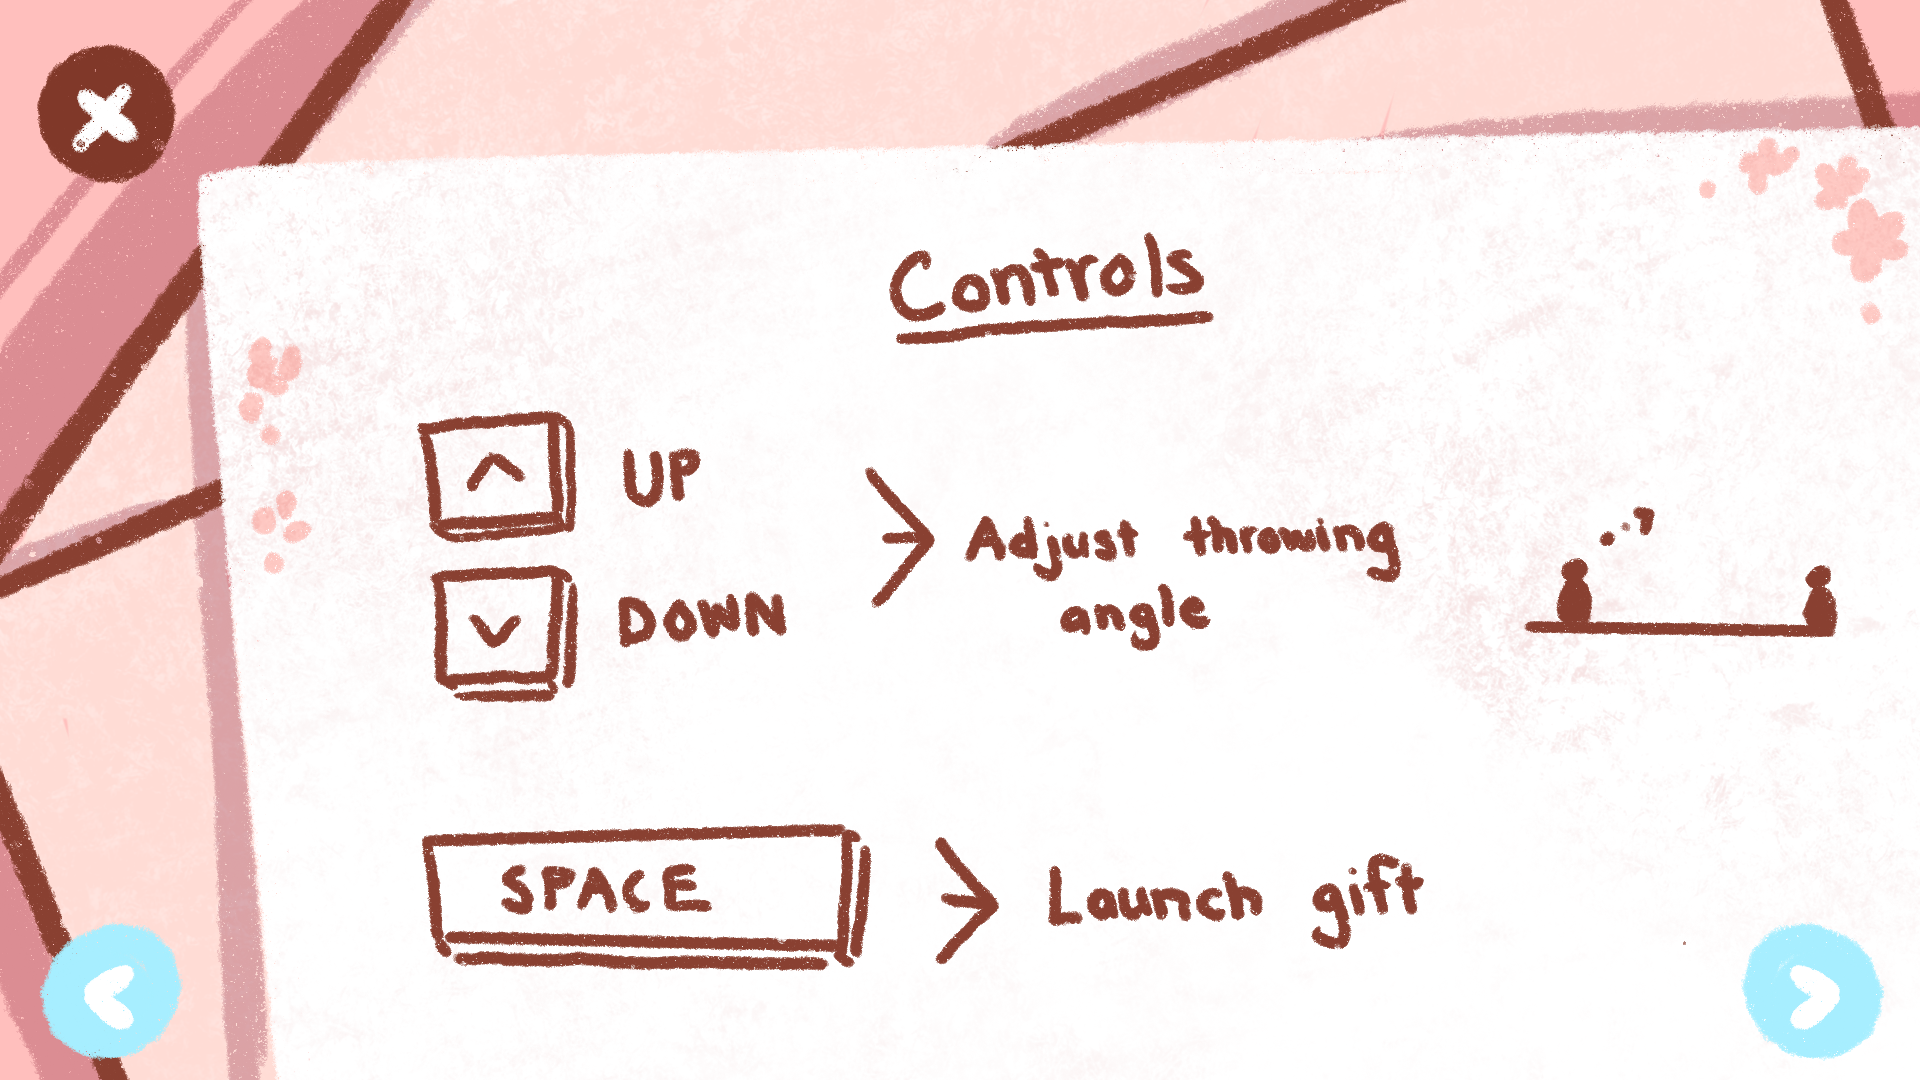 Controls
UP
DOWN
Adjust throwing
angle
SPACE
Launch gift